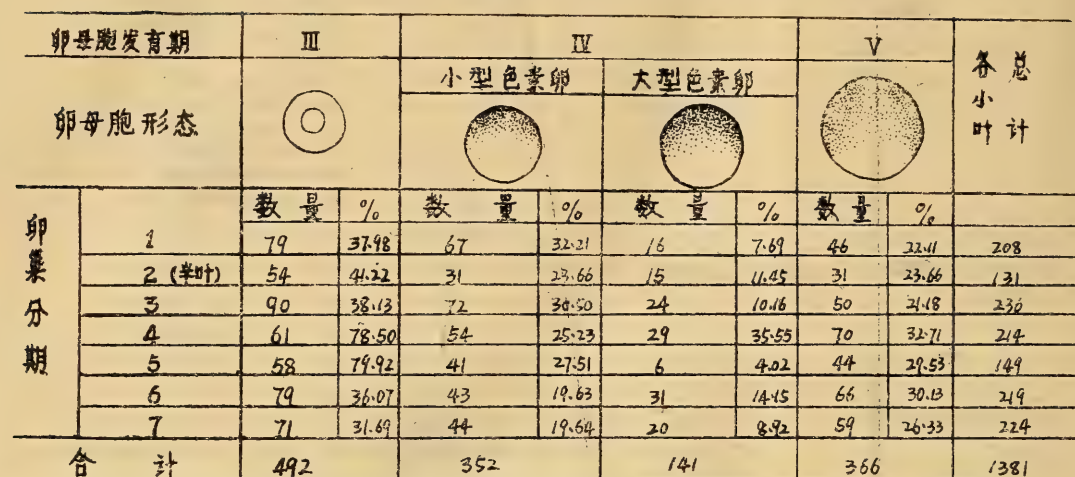 卵母胞发育期 III IV V 各小叶 总计
小型色素卵 大型色素卵
卵母胞形态
数量 % 数量 % 数量 % 数量 %
卵巢分期
1 79 37.98 67 32.21 16 7.69 46 22.11 208
2 (半叶) 54 41.22 31 23.66 15 11.45 31 23.66 131
3 90 38.13 72 30.50 24 10.16 50 21.18 236
4 61 78.50 54 25.23 29 35.55 70 32.71 214
5 58 79.92 41 27.51 6 4.02 44 29.53 149
6 79 36.07 43 19.63 31 14.15 66 30.13 219
7 71 31.69 44 19.64 20 8.92 59 26.33 224
合计 492 352 141 366 1381